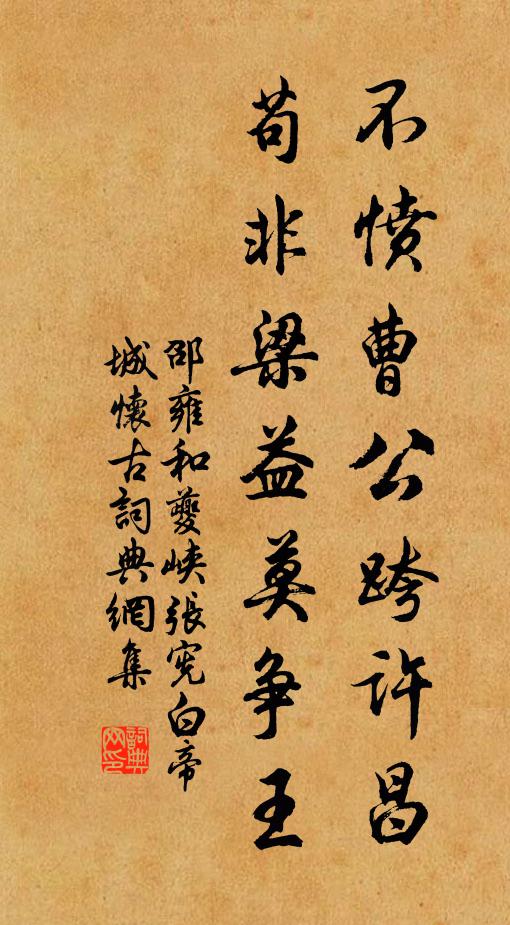 不憤曹公跨許昌
苟非梁益莫争王
邵雍和夔峡張宪白帝
城懷古詞典網集
詞典網印